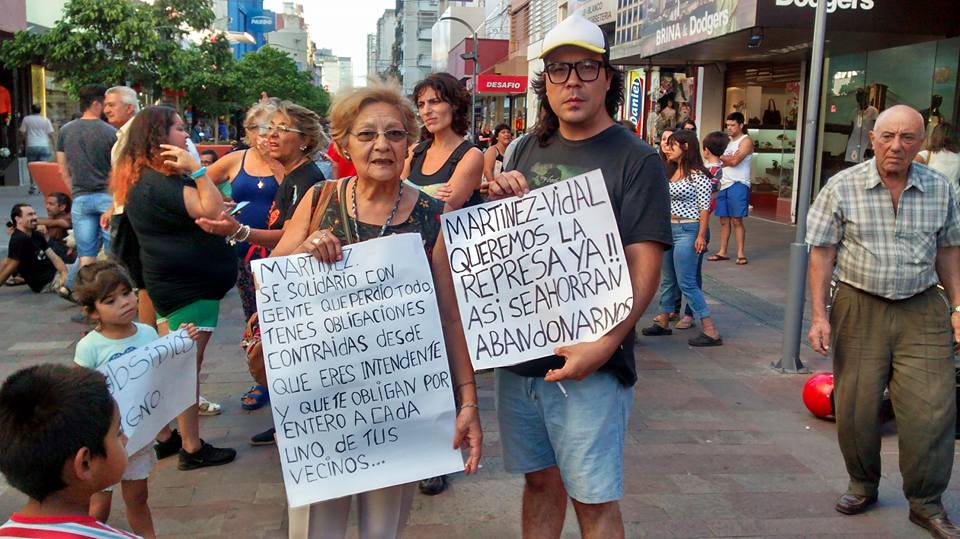 PARDO
BLANCO
DESAFIO
BRINA & DODGERS
Dodgers
Daniel
MARTINEZ
SE SOLIDARIO CON
GENTE QUE PERDIO TODO,
TENES OBLIGACIONES
CONTRAIDAS DESDE
QUE ERES INTENDENTE
Y QUE TE OBLIGAN POR
ENTERO A CADA
UNO DE TUS
VECINOS...
MARTINEZ-VIDAL
QUEREMOS LA
REPRESA YA!!
ASI SE AHORRAN
ABANDONARNOS